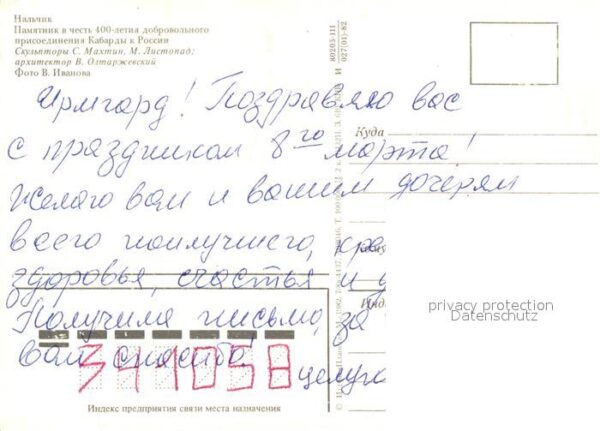 Нальчик
Памятник в честь 400-летия добровольного
присоединения Кабарды к России
Скульпторы С. Махтин, М. Листопад;
архитектор В. Олтаржевский
Фото В. Иванова
Ирмгард! Поздравляю вас
с праздником 8го марта!
Желаю вам и вашим дочерям
всего наилучшего,
здоровья, счастья и
Получила письмо, за
вам спасибо!
341058
Индекс предприятия связи места назначения
80203-111
027(01)-82
Куда
privacy protection
Datenschutz